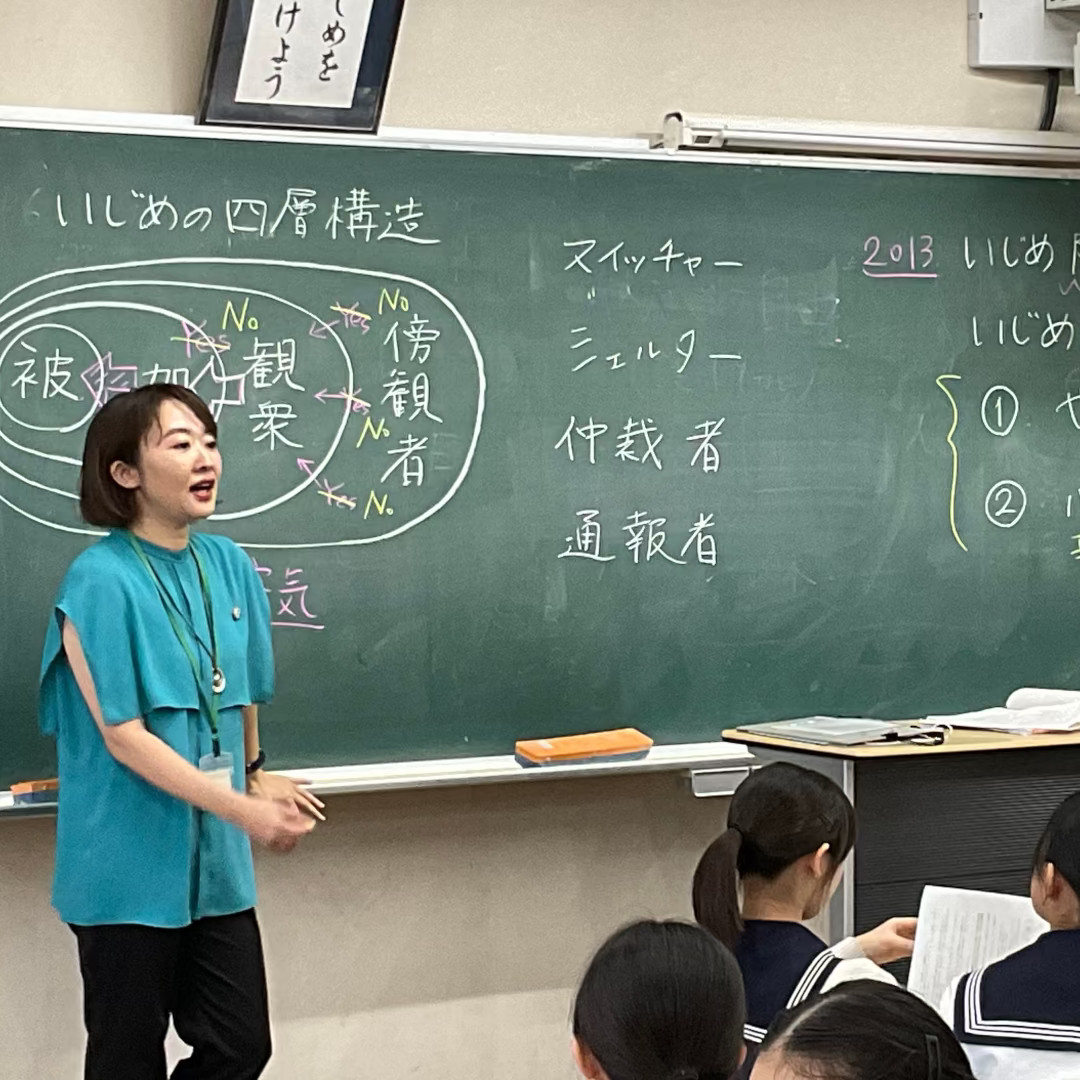 じめを
けよう
いじめの四層構造
被
加
観衆
傍観者
Yes No
Yes No
Yes No
Yes No
気
スイッチャー
シェルター
仲裁者
通報者
2013 いじめ
いじめ
①
②